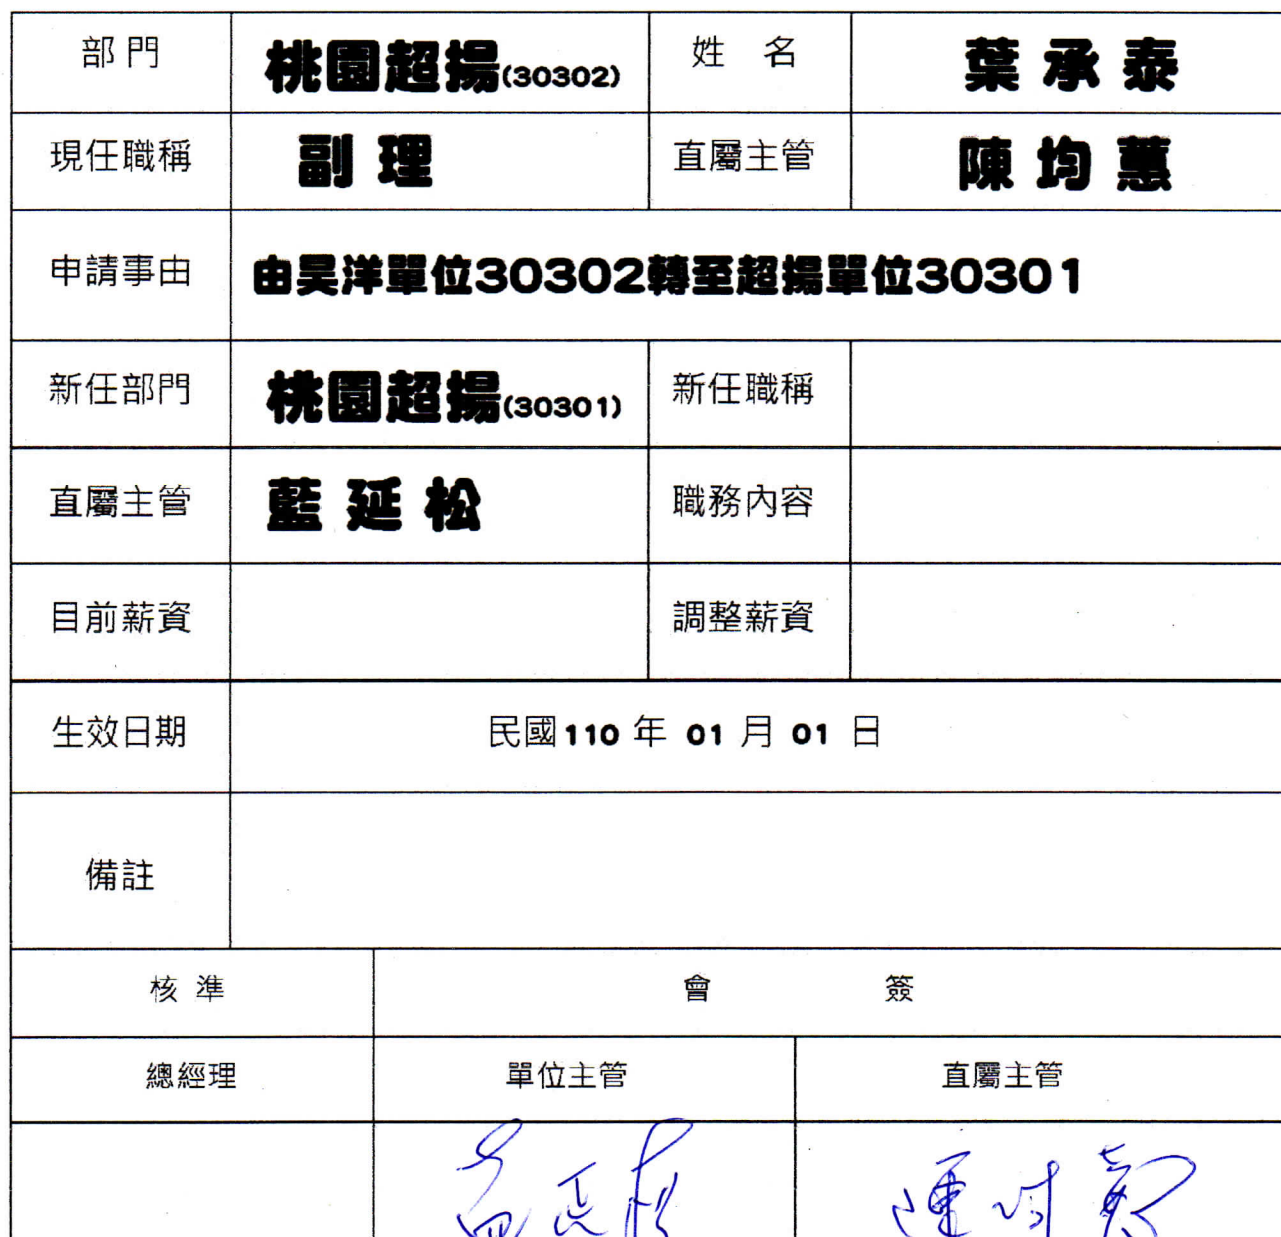 部門 桃園超揚(30302) 姓 名 葉承泰
現任職稱 副理 直屬主管 陳均蕙
申請事由 由昊洋單位30302轉至超揚單位30301
新任部門 桃園超揚(30301) 新任職稱
直屬主管 藍延松 職務內容
目前薪資 調整薪資
生效日期 民國110年 01月01日
備註
核準 會 簽
總經理 單位主管 直屬主管